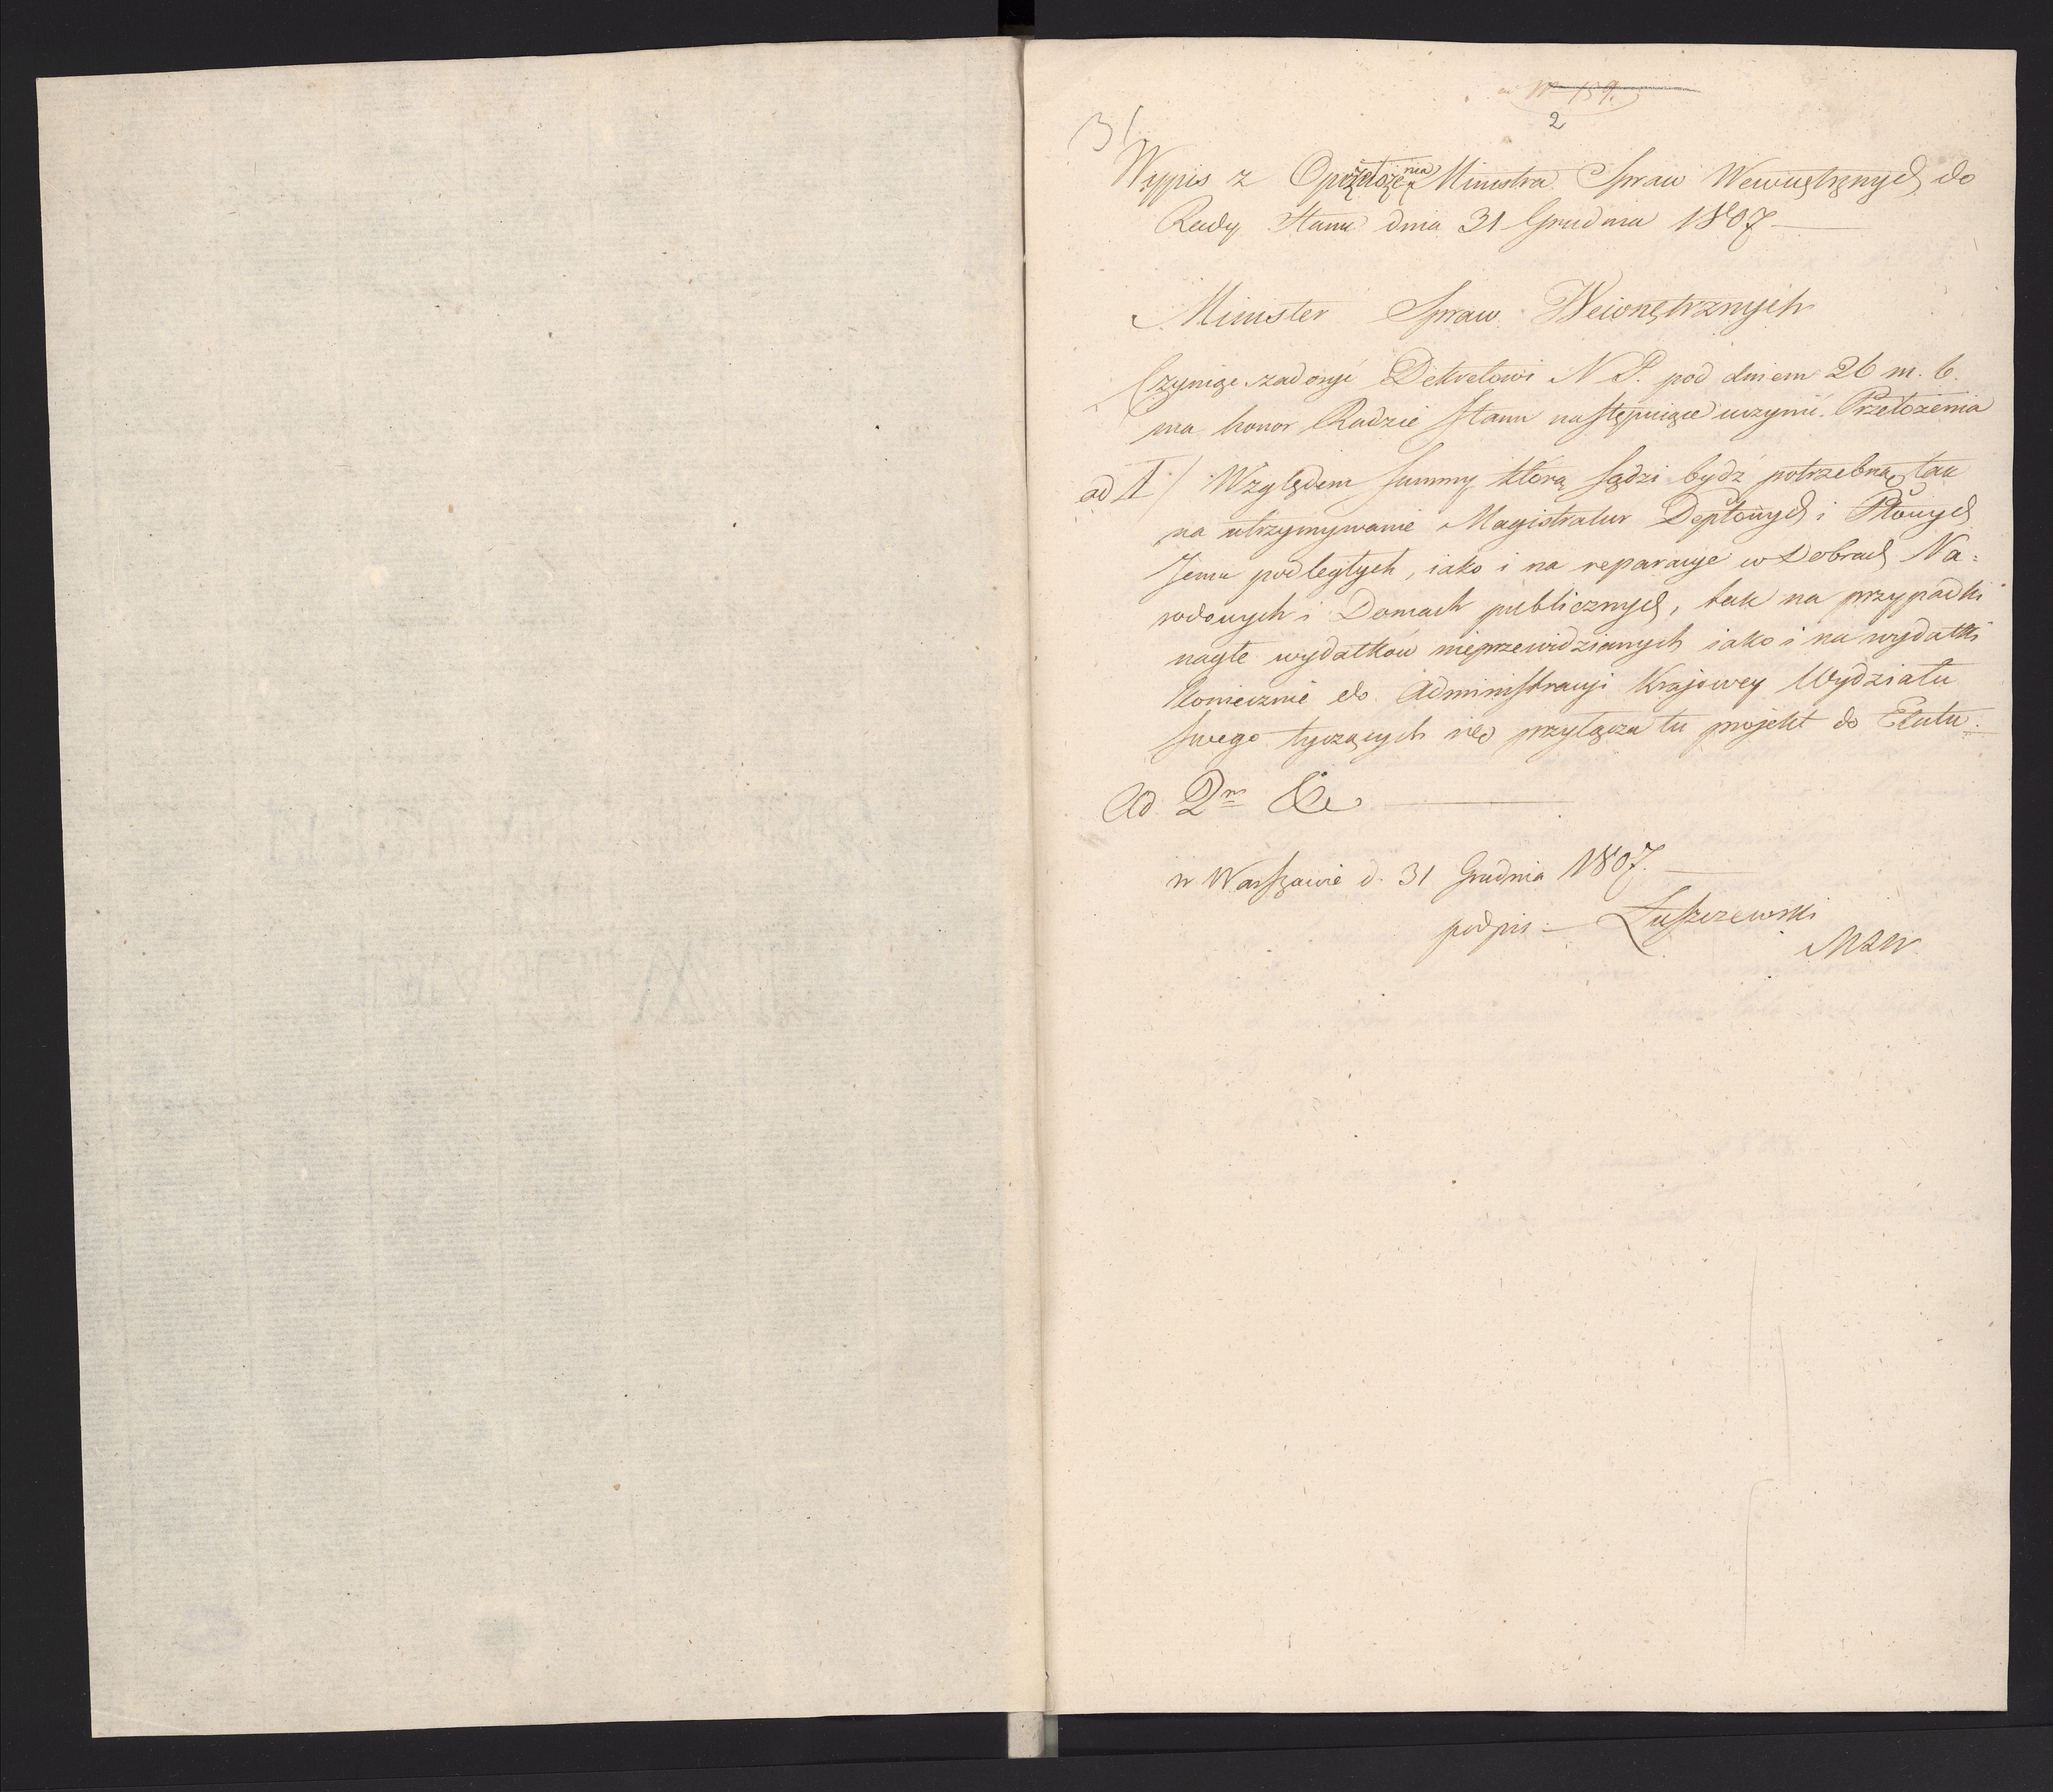 2
3/
Wypis z Oprzełożenia Ministra Spraw Wewnętrznych do
Rady Stanu dnia 31 Grudnia 1807
Minister Spraw Wewnętrznych
Czyniąc zadosyć Dekretowi N P. pod dniem 26 m. b.
ma honor Radzie Stanu następuiące uczynić Przełożenia
ad I/ Względem summy którą sądzi bydź potrzebną tak
na utrzymywanie Magistratur Deptowych i Ptowych
Jemu podległych, iako i na reparacye w Dobrach Na=
rodowych i Domach publicznych, tak na przypadki
nagłe wydatków nieprzewidzianych iako i na wydatki
koniecznie do Administracyi Krajowey Wydziału
swego tyczących się przyłącza tu projekt do Etatu.
Ad 2m &c
w Warszawie d. 31 Grudnia 1807.
podpis — Łuszczewski
MSW